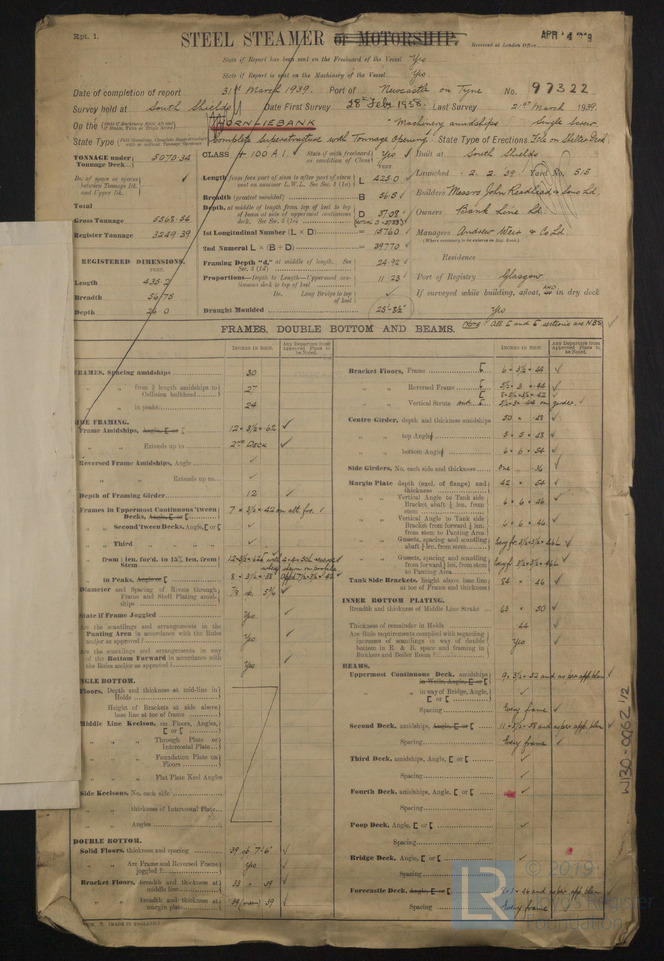 Rpt. 1.
STEEL STEAMER or MOTORSHIP.
APR 4 1939
Received at London Office
State if Report has been sent on the Freeboard of the Vessel Yes
State if Report is sent on the Machinery of the Vessel Yes
Date of completion of report 31st March 1939. Port of Newcastle on Tyne No. 97322
Survey held at South Shields Date First Survey 28th Feby 1938. Last Survey 2nd March 1939.
On the THORNLIEBANK Machinery amidships Single Screw
State Type Complete Superstructure with Tonnage Opening State Type of Erections Fcle on Shelter Deck
TONNAGE under Tonnage Deck 5070.34
Do. of space or spaces between Tonnage Dk. and Upper Dk.
Total
Gross Tonnage 5568.54
Register Tonnage 3249.39
REGISTERED DIMENSIONS.
FEET.
Length 435.2
Breadth 56.75
Depth 26.0
CLASS + 100 A 1. State if with freeboard as condition of Class Yes
Length from fore part of stem to after part of stern post on summer L.W.L. See Sec. 3 (1a) L 425.0
Breadth (greatest moulded) B 56.5
Depth, at middle of length from top of keel to top of beam at side of uppermost continuous deck. See Sec. 3 (1c) D 37.08
1st Longitudinal Number (L × D) = 15760
2nd Numeral L × (B + D) = 39770
Framing Depth "d," at middle of length. See Sec. 3 (1d) 24.92
Proportions—Depth to Length—Uppermost continuous deck to top of keel 11.23
Do. Long Bridge to top of keel
Draught Moulded 25'-8½"
Built at South Shields
Launched 2.2.39 Yard No. 515
Builders Messrs John Readhead & Sons Ld
Owners Bank Line Ld.
Managers Andrew Weir & Co Ld
(Where necessary to be entered in Reg. Book.)
Residence
Port of Registry Glasgow
If surveyed while building, afloat, and in dry dock
Yes
FRAMES, DOUBLE BOTTOM AND BEAMS.
INCHES IN SHIP.
Any Departure from Approved Plans to be Noted.
FRAMES, Spacing amidships 30
" " from ⅗ length amidships to Collision bulkhead 27
" " in peaks 24
SIDE FRAMING.
Frame Amidships, Angle, [ or [ 12 × 3½ × .62
" " Extends up to 2nd Deck
Reversed Frame Amidships, Angle
" " " Extends up to
Depth of Framing Girder 12
Frames in Uppermost Continuous 'tween Decks, Angle, [ or [ 7 × 3½ × .42 on alt. frs.
" " Second 'tween Decks, Angle, [ or [
" " Third " " "
" " in Peaks, Angle or [
Diameter and Spacing of Rivets through Frame and Shell Plating amidships 7/8
State if Frame Joggled Yes
Are the scantlings and arrangements in the Panting Area in accordance with the Rules and/or as approved? Yes
Are the scantlings and arrangements in way of the Bottom Forward in accordance with the Rules and/or as approved? Yes
SINGLE BOTTOM.
Floors, Depth and thickness at mid-line in Holds
" Height of Brackets at side above base line at toe of frame
Middle Line Keelson, on Floors, Angles, [ or [
" " " Through Plate or Intercostal Plate
" " " Foundation Plate on Floors
" " " Flat Plate Keel Angles
Side Keelsons, No. each side
" " thickness of Intercostal Plate
" " Angles
DOUBLE BOTTOM.
Solid Floors, thickness and spacing .39 at 7'-6"
" " Are Frame and Reversed Frame joggled? Yes
Bracket Floors, breadth and thickness at middle line 33 × .39
" " breadth and thickness at margin plate
Bracket Floors, Frame [ 6 × 3½ × .44
" " Reversed Frame [
" " Vertical Struts
Centre Girder, depth and thickness amidships 50 × .53
" " top Angles 5 × 5 × .53
" " bottom Angles 6 × 6 × .54
Side Girders, No. each side and thickness One .36
Margin Plate depth (excl. of flange) and thickness 42 × .54
" " Vertical Angle to Tank side Bracket abaft ¼ len. from stem 6 × 6 × .46
" " Vertical Angle to Tank side Bracket from forward ¼ len. from stem to Panting Area 6 × 6 × .46
" " Gussets, spacing and scantling abaft ¼ len. from stem
" " Gussets, spacing and scantling from forward ¼ len. from stem to Panting Area
Tank Side Brackets, Height above base line at toe of Frame and thickness 84 × .46
INNER BOTTOM PLATING.
Breadth and thickness of Middle Line Strake 63 × .50
Thickness of remainder in Holds .44
Are Rule requirements complied with regarding increase of scantlings in way of double bottom in E. & B. space and framing in Bunkers and Boiler Room? Yes
BEAMS.
Uppermost Continuous Deck, amidships 9 × 3½ × .52 and as per app. plan
" " in way of Bridge, Angle, [ or [
Spacing Every frame
Second Deck, amidships, Angle, [ or [ 11 × 3½ × .58 and as per app. plan
Spacing Every frame
Third Deck, amidships, Angle, [ or [
Spacing
Fourth Deck, amidships, Angle, [ or [
Spacing
Poop Deck, Angle, [ or [
Spacing
Bridge Deck, Angle, [ or [
Spacing
Forecastle Deck, Angle, [ or [ and as per app. plan
Spacing Every frame
W130-0062 1/2
LR
© 2019
Lloyd's Register
Foundation